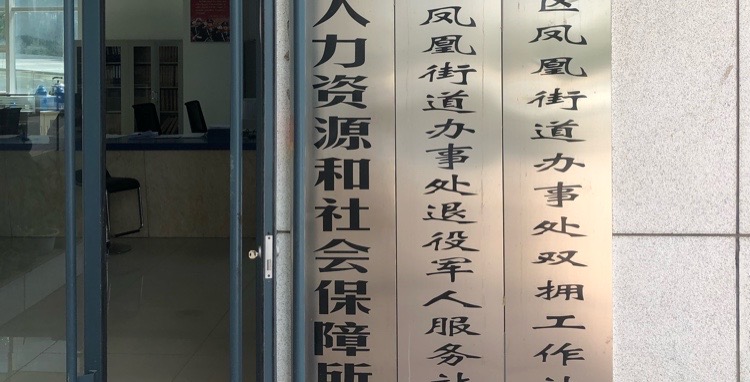 人力资源和社会保障所
凤凰街道办事处退役军人服务站
区凤凰街道办事处双拥工作